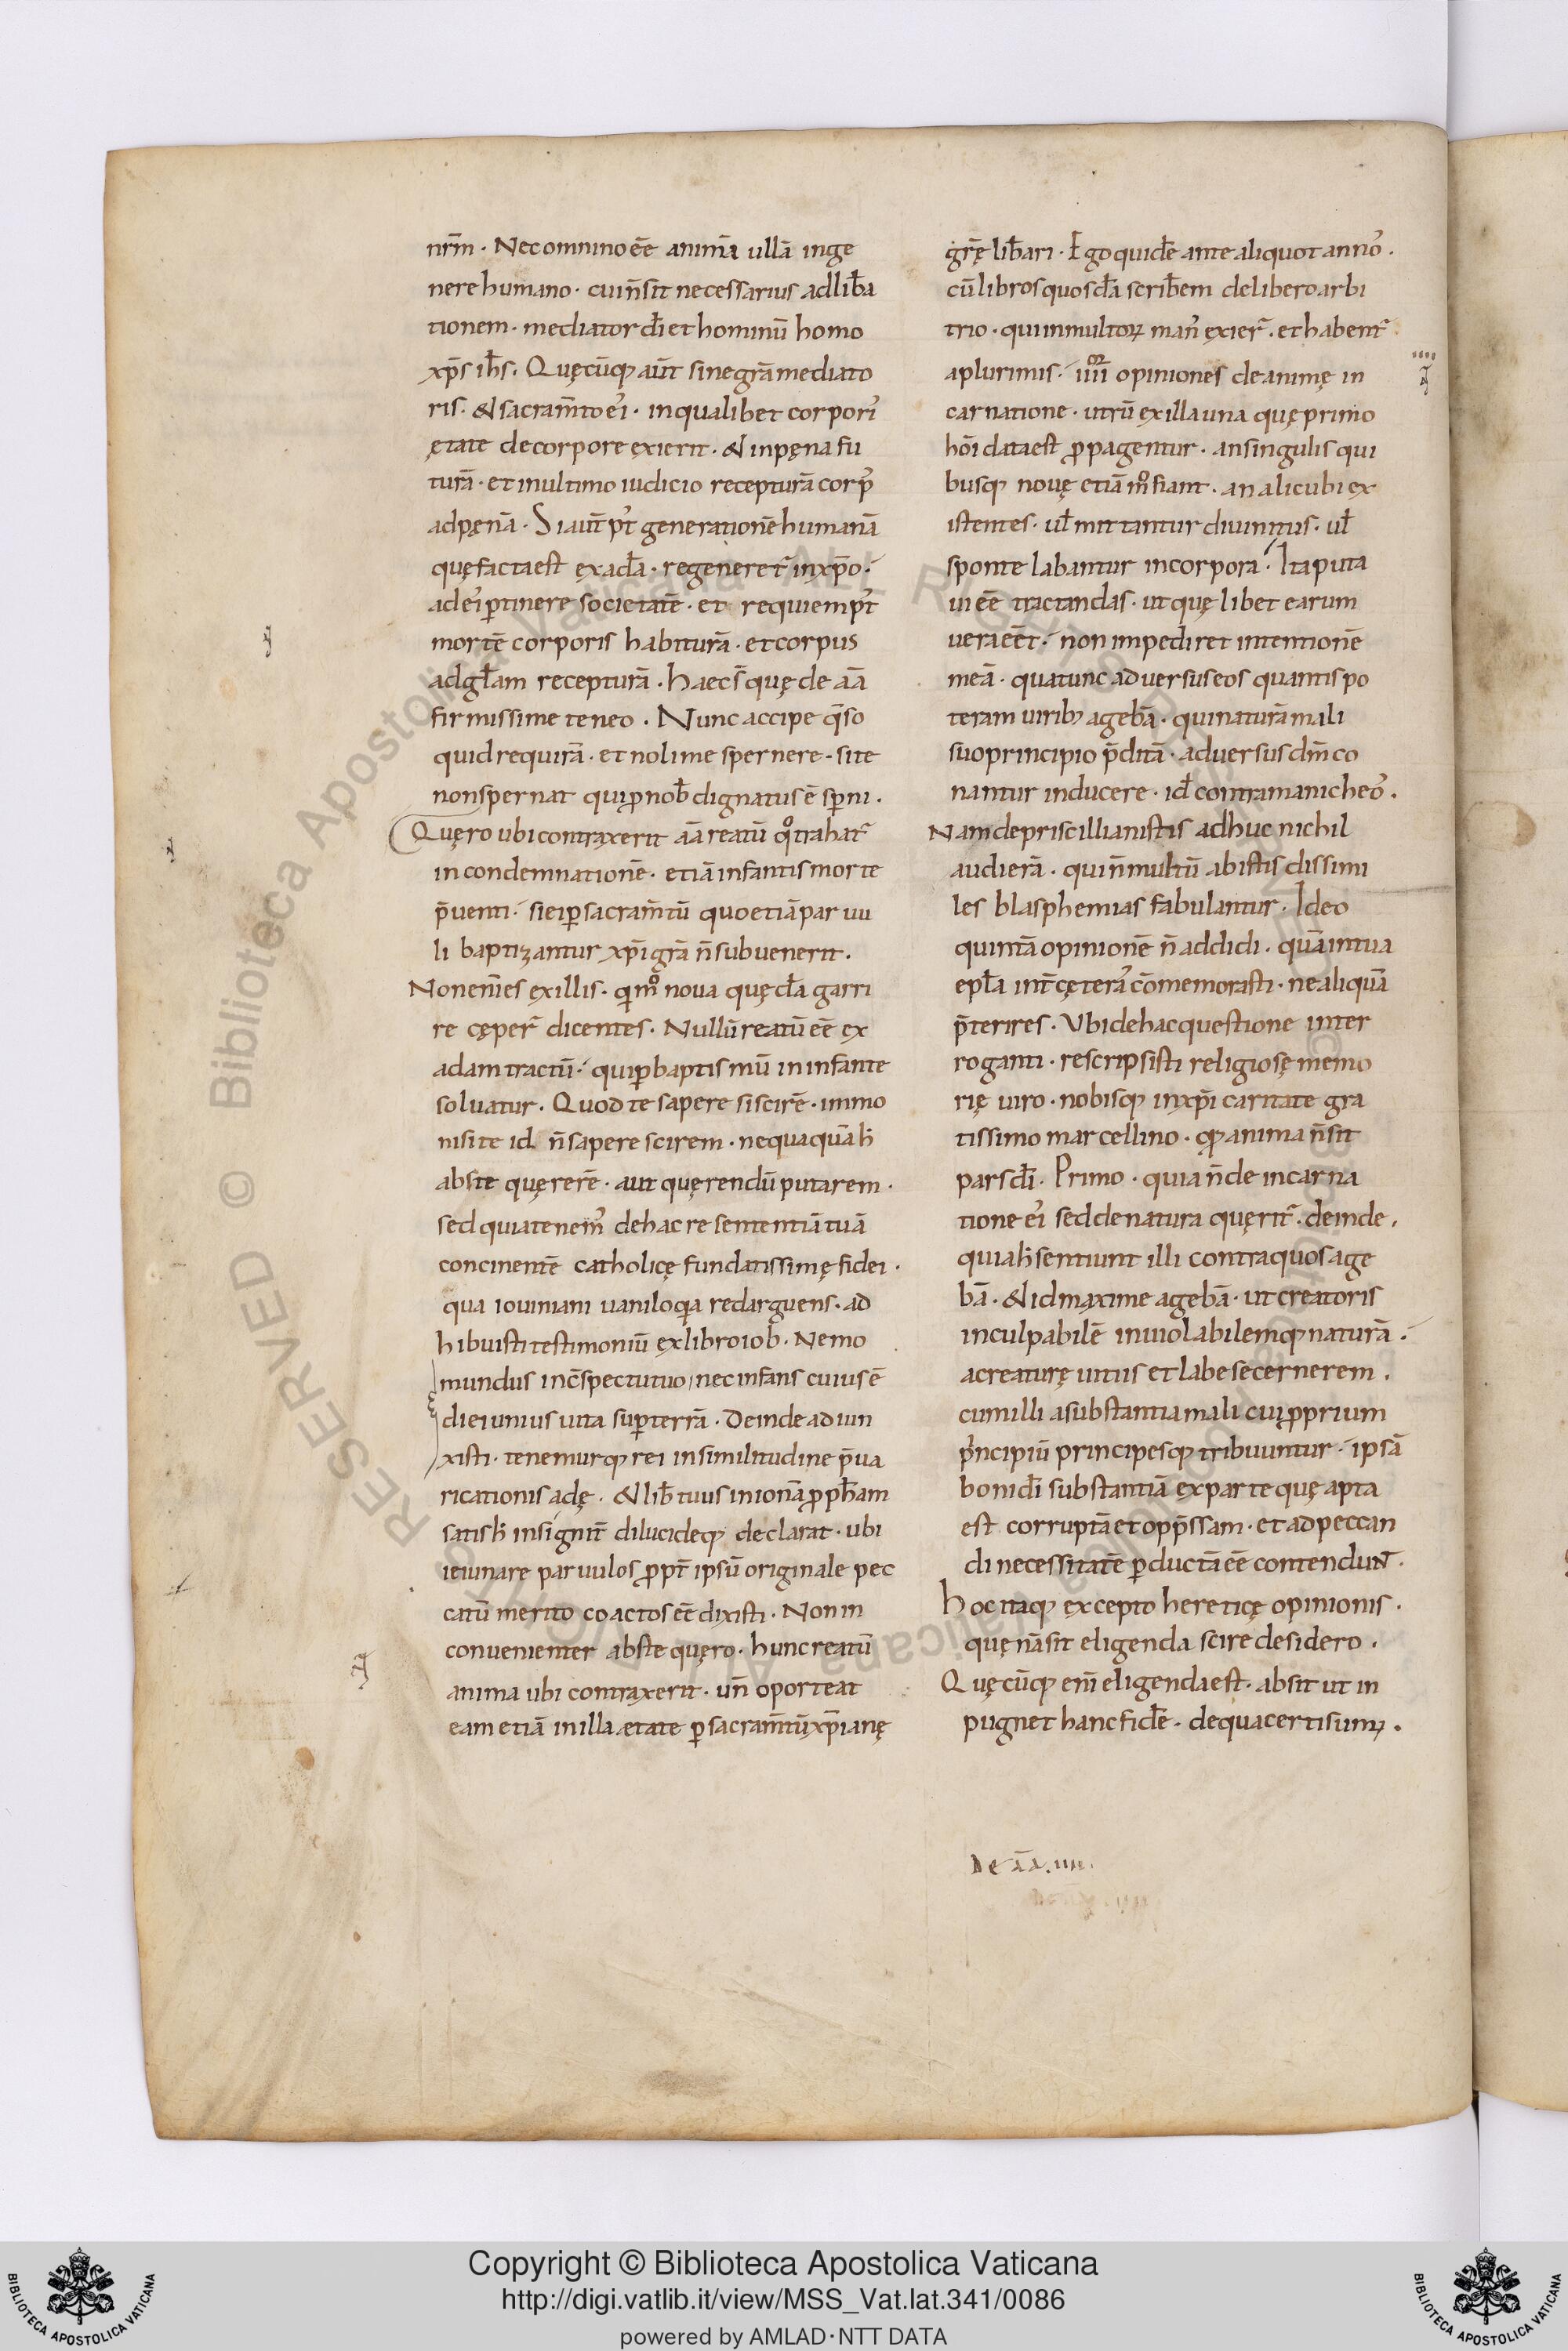 nr̄m · Nec omnino ee̅ animā ullā in ge
nere humano · cui n̄ sit necessarius ad lib̄a
tionem · mediator dī et hominū homo
xp̄s ih̄s · Quęcūq; aūt sine grā mediato
ris · & sacram̄to ei᾽ · in qualibet corpori᾽
ętate de corpore exierit · & in pęna fu
turā · et in ultimo iudicio recepturā corp᾽
ad pęnā · Si aūt p᾽t generationē humanā
quę facta est ex adā · regeneret᾽ in xp̄o ·
ad ei᾽ ꝑtinere societatē · et requiem p᾽t
mortē corporis habiturā · et corpus
ad gl̄am recepturā · haec s̄ quę de aā
firmissime teneo · Nunc accipe q̄so
quid requirā · et noli me spernere · si te
non spernat qui ꝓ nob̄ dignatus ē sꝑni ·
Quęro ubi contraxerit aā reatū qͦ trahat᾽
in condemnationē · etiā infantis morte
p̄uenti · si ei ꝑ sacram̄tū quo etiā paruu
li baptizantur xp̄i grā n̄ subuenerit ·
Non eni̅ es ex illis · qi mͦ noua quędā garri
re cęper᾽ dicentes · Nullū reatū ee̅ ex
adam tractū · qui ꝑ baptismū in infante
soluatur · Quod te sapere si scirē · immo
nisi te id n̄ sapere scirem · nequaquā h᾽
abs te quęrerē · aut quęrendū putarem ·
sed quia tenem᾽ de hac re sententiā tuā
concinentē catholicę fundatissimę fidei ·
qua iouiniani uaniloqia redarguens · ad
hibuisti testimoniū ex libro iob · Nemo
mundus in c̄spectu tuo / nec infans cuius ē
diei unius uita suꝑ terrā · Deinde adiun
xisti · tenemurq; rei in similitudine p̄ua
ricationis adę · & lib̄ tuus in ionā ꝓph̄am
satis h᾽ insignit̄ dilucideq; declarat · ubi
ieiunare paruulos ꝓpt̄ ipsū originale pec
catū merito coactos ee̅ dixisti · Non in
conuenienter abs te quęro · hunc reatū
anima ubi contraxerit · un̄ oporteat
eam etiā in illa ætate ꝑ sacram̄tū xp̄ianę
gr̄ę lib̄ari · Ego quidē ante aliquot anno᾽ ·
cū libros quosdā scrib̄em de libero arbi
trio · qui in multoꝝ man᾽ exier᾽ · et habent᾽
a plurimis · iiiior opiniones de animę in
carnatione · utrū ex illa una quę primo
hōi data est ꝓpagentur · an singulis qui
busq; nouę etiā mͦ fiant · an alicubi ex
istentes · ul̄ mittantur diuinitus · ul̄
sponte labantur in corpora · Ita puta
ui ee̅ tractandas · ut quę libet earum
uera ee̅t · non impediret intentionē
meā · qua tunc aduersus eos quantis po
teram uirib; agebā · qui naturā mali
suo principio p̄ditā · aduersus dm̄ co
nantur inducere · id̄ contra manicheo᾽ ·
Nam de priscillianistis adhuc nichil
audierā · qui n̄ multū ab istis dissimi
les blasphemias fabulantur · Ideo
quintā opinionē n̄ addidi · quā in tua
epl̄a int̄ cętera᾽ c̄omemorasti · ne aliquā
p̄terires · Vbi de hac questione inter
roganti · rescripsisti religiosę memo
rię uiro · nobisq; in xp̄i caritate gra
tissimo marcellino · qꝫ anima n̄ sit
pars dī · Primo · quia n̄ de incarna
tione ei᾽ sed de natura quęrit᾽ · deinde ·
quia h᾽ sentiunt illi contra quos age
bā · & id maxime agebā · ut creatoris
inculpabilē inuiolabilemq; naturā ·
a creaturę uitiis et labe secernerem ·
cum illi a substantia mali cui ꝓprium
pⁱncipiū principesq; tribuuntur · ipsā
boni dī substantiā ex parte quę apta
est corruptā et opp̄ssam · et ad peccan
di necessitatē ꝑductā ee̅ contendunt ·
Hoc itaq; excepto hereticę opinionis ·
quę nā sit eligenda scire desidero ·
Quęcūq; eni̅ eligenda est · absit ut in
pugnet hanc fidē · de qua certi sumꝰ ·
De aā · iiii ·
Copyright © Biblioteca Apostolica Vaticana
http://digi.vatlib.it/view/MSS_Vat.lat.341/0086
powered by AMLAD·NTT DATA
BIBLIOTECA APOSTOLICA VATICANA
BIBLIOTECA APOSTOLICA VATICANA